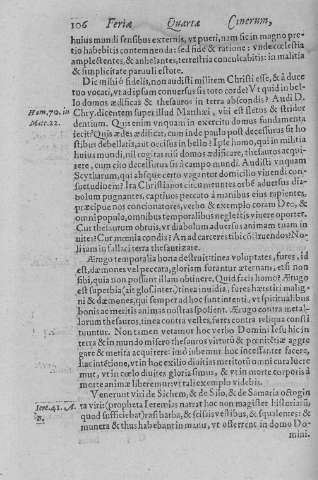 106 Feriæ Quartæ Cinerum,
huius mundi sensibus externis, vt pueri, nam sic in magno pre-
tio habebitis contemnenda: sed fide & ratione: vnde cœlestia
amplectentes, & anhelantes, terrestria conculcabitis: in malitia
& simplicitate paruuli estote.
Dic mihi ô fidelis, non audisti militem Christi esse, & à duce
tuo vocati, vt ad ipsum conuersus sis toto corde? Vt quid in bel-
lo domos ædificas & thesauros in terra abscondis? Audi D.
Hom. 70. in Chry. dicentem super illud Matthæi, vbi est fletus & stridor
Matt. 22. dentium. Quis enim vnquam in exercitu domos fundamenta
iecit? Quis ædes ædificat, cum inde paulo post decessurus sit ho
stibus debellatis, aut occisus in bello? Ipse homo, qui in militia
huius mundi, nil cogitas nisi domos ædificare, thesauros acqui-
rere, cum cito decessurus sis è campo mundi. Audisti vnquam
Scytharum, qui absque certo vagantur domicilio viuendi con-
suetudinem? Ita Christianos circumeuntes orbé aduersus dia-
bolum pugnantes, captiuos peccato à manibus eius rapientes,
præcipue nos concionatores, verbo & exemplo coram Deo, &
omni populo, omnibus temporalibus neglectis viuere oportet.
Cur thesaurum obruis, vt diabolum aduersus animam tuam in
uites? Cur mœnia condis? An ad carceres tibi cōstruendos? No-
li iam in fallaci terra thesaurizare.
Ærugo temporalia bona destruit: inea voluptates, fures, id
est, dæmones vel peccata, gloriam furantur æternam, etsi non
sibi, quia non possunt illam obtinere. Quid facis homo? Ærugo
est superbia (ait glos. inter.) tinea inuidia, fures hæretici malig-
ni & dæmones, qui semper ad hoc sunt intenti, vt spiritualibus
bonis ac meritis animas nostras spolient. Ærugo contra metal-
lorum thesauros, tinea contra vestes, fures contra reliqua consti
tuuntur. Non tamen vetamur hoc verbo Domini Iesu hic in
terra & in mundo misero thesauros virtutū & pœnitētiæ aggre
gare & merita acquirere: imò iubemur huc incessanter facere,
hac intētione, vt in hoc exilio diuitiis meritorū omni cura lucre
mur, vt in cœlo diuites gloria simus, & vt in morte corporis à
morte animæ liberemur: vt tali exemplo videbis.
Venerunt viri de Sichem, & de Silo, & de Samaria octogin
Iere. 41. A. ta viri: (propheta Ieremias narrat hoc non magister historiarū,
B. quod sufficebat) rasi barba, & scissis vestibus, & squalentes: &
munera & thus habebant in manu, vt offerrent in domo Do-
mini.